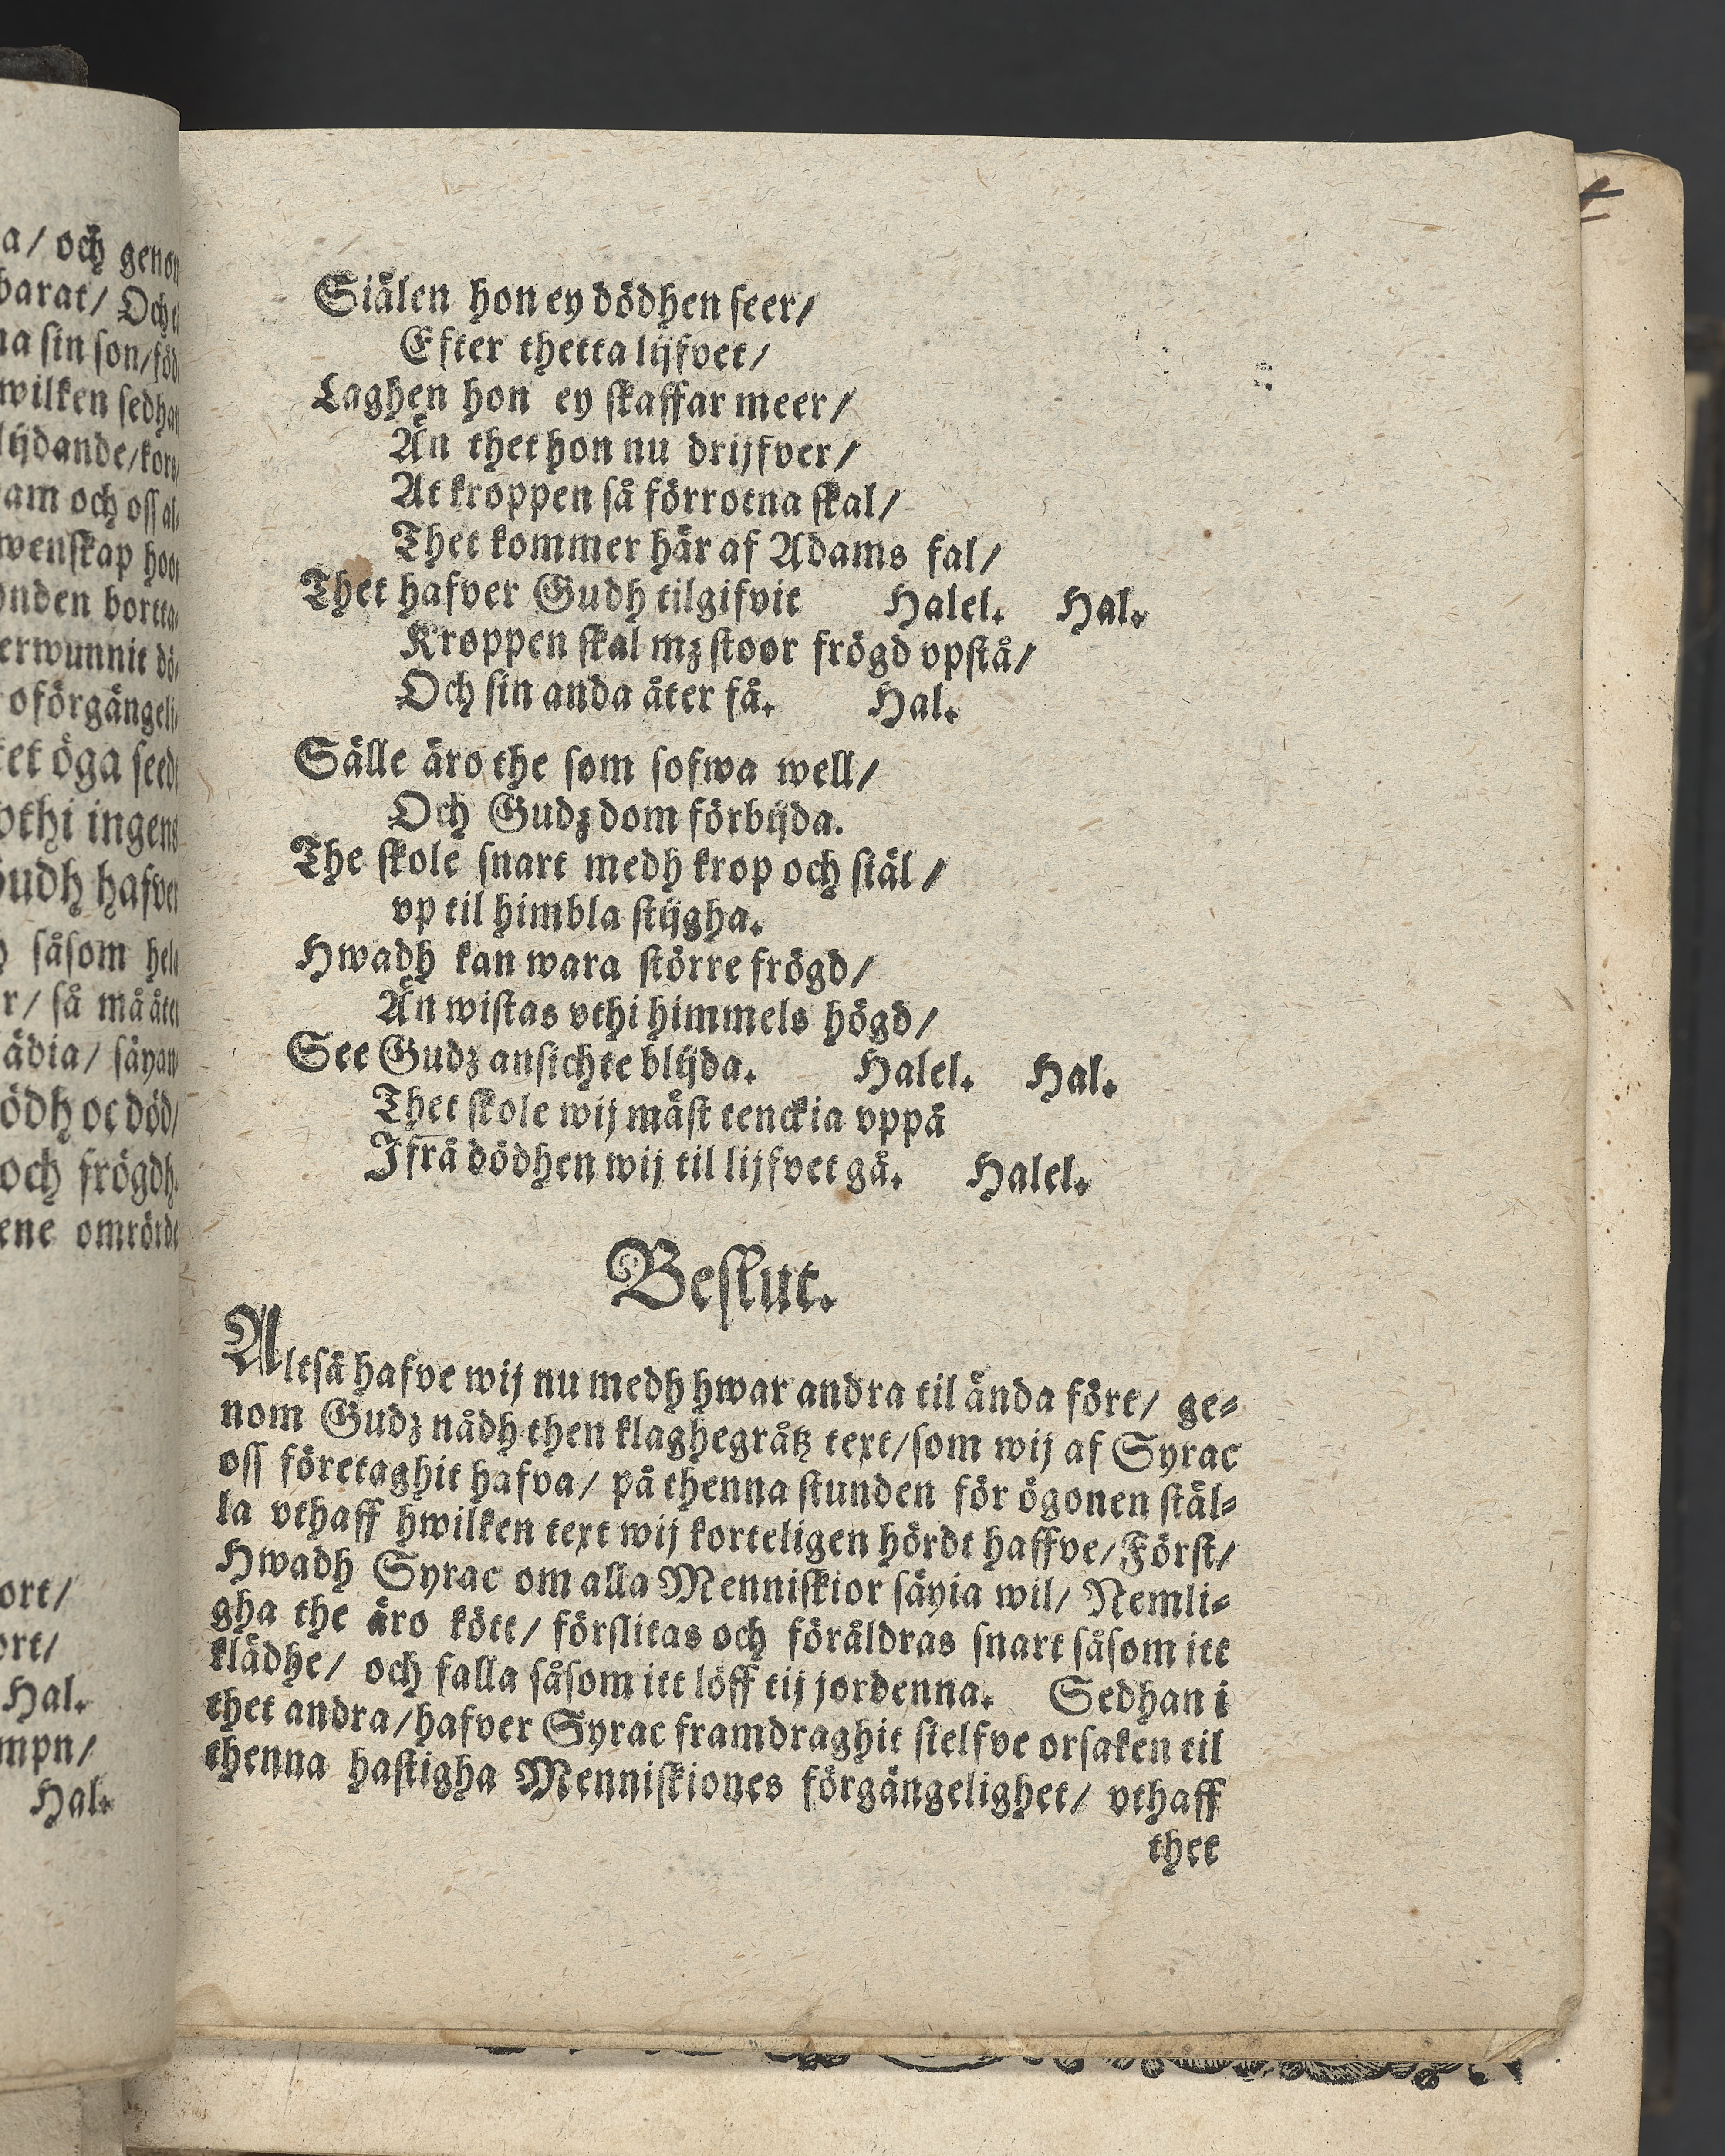 a/ och genom
barat/ Och
na sin son/ föd
wilken sedhan
lijdande/kors
am och oss al
wenskap hoos
onden bortta
erwunnit dö
oförgängeli
et öga seedt
vthi ingens
Gudh hafver
såsom hel
r/ så må åter
ädia/ säyan
ödh oc död/
och frögdh.
ene omrörde
ort/
ort/
Hal.
mpn/
Hal.
Siälen hon ey dödhen seer/
Efter thetta lijfvet/
Laghen hon ey skaffar meer/
Än thet hon nu drijfver/
At kroppen så förrotna skal/
Thet kommer här af Adams fal/
Thet hafver Gudh tilgifvit Halel. Hal.
Kroppen skal mz stoor frögd vpstå/
Och sin anda åter få. Hal.
Sälle äro the som sofwa well/
Och Gudz dom förbijda.
The skole snart medh krop och siäl/
vp til himbla stijgha.
Hwadh kan wara större frögd/
Än wistas vthi himmels högd/
See Gudz ansichte blijda. Halel. Hal.
Thet skole wij mäst tenckia vppå
Ifrå dödhen wij til lijfvet gå. Halel.
Beslut.
Altså hafve wij nu medh hwar andra til ända fört/ ge-
nom Gudz nådh then klaghegråtz text/som wij af Syrac
oss företaghit hafva/ på thenna stunden för ögonen stäl-
la vthaff hwilken text wij korteligen hördt haffve/Först/
Hwadh Syrac om alla Menniskior säyia wil/ Nemli-
gha the äro kött/ förslitas och föråldras snart såsom itt
klädhe/ och falla såsom itt löff tij jordenna. Sedhan i
thet andra/hafver Syrac framdraghit sielfve orsaken til
thenna hastigha Menniskiones förgängelighet/ vthaff
thet